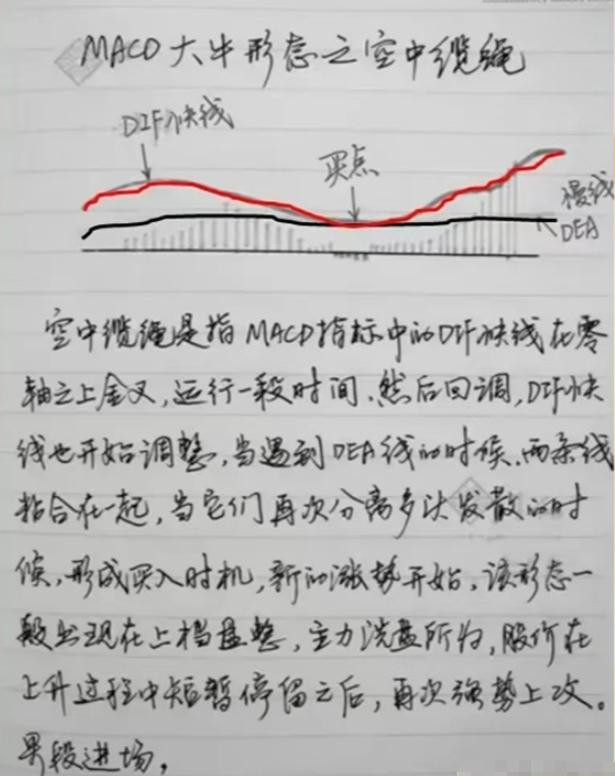 MACD大牛形态之空中缆绳
DIF快线
买点
慢线
DEA
空中缆绳是指MACD指标中的DIF快线在零
轴之上金叉,运行一段时间、然后回调,DIF快
线也开始调整,当遇到DEA线的时候、两条线
粘合在一起,当它们再次分离多头发散的时
候,形成买入时机,新的涨势开始。该形态一
般出现在上档盘整,主力洗盘所为,股价在
上升过程中短暂停留之后,再次强势上攻。
果段进场,